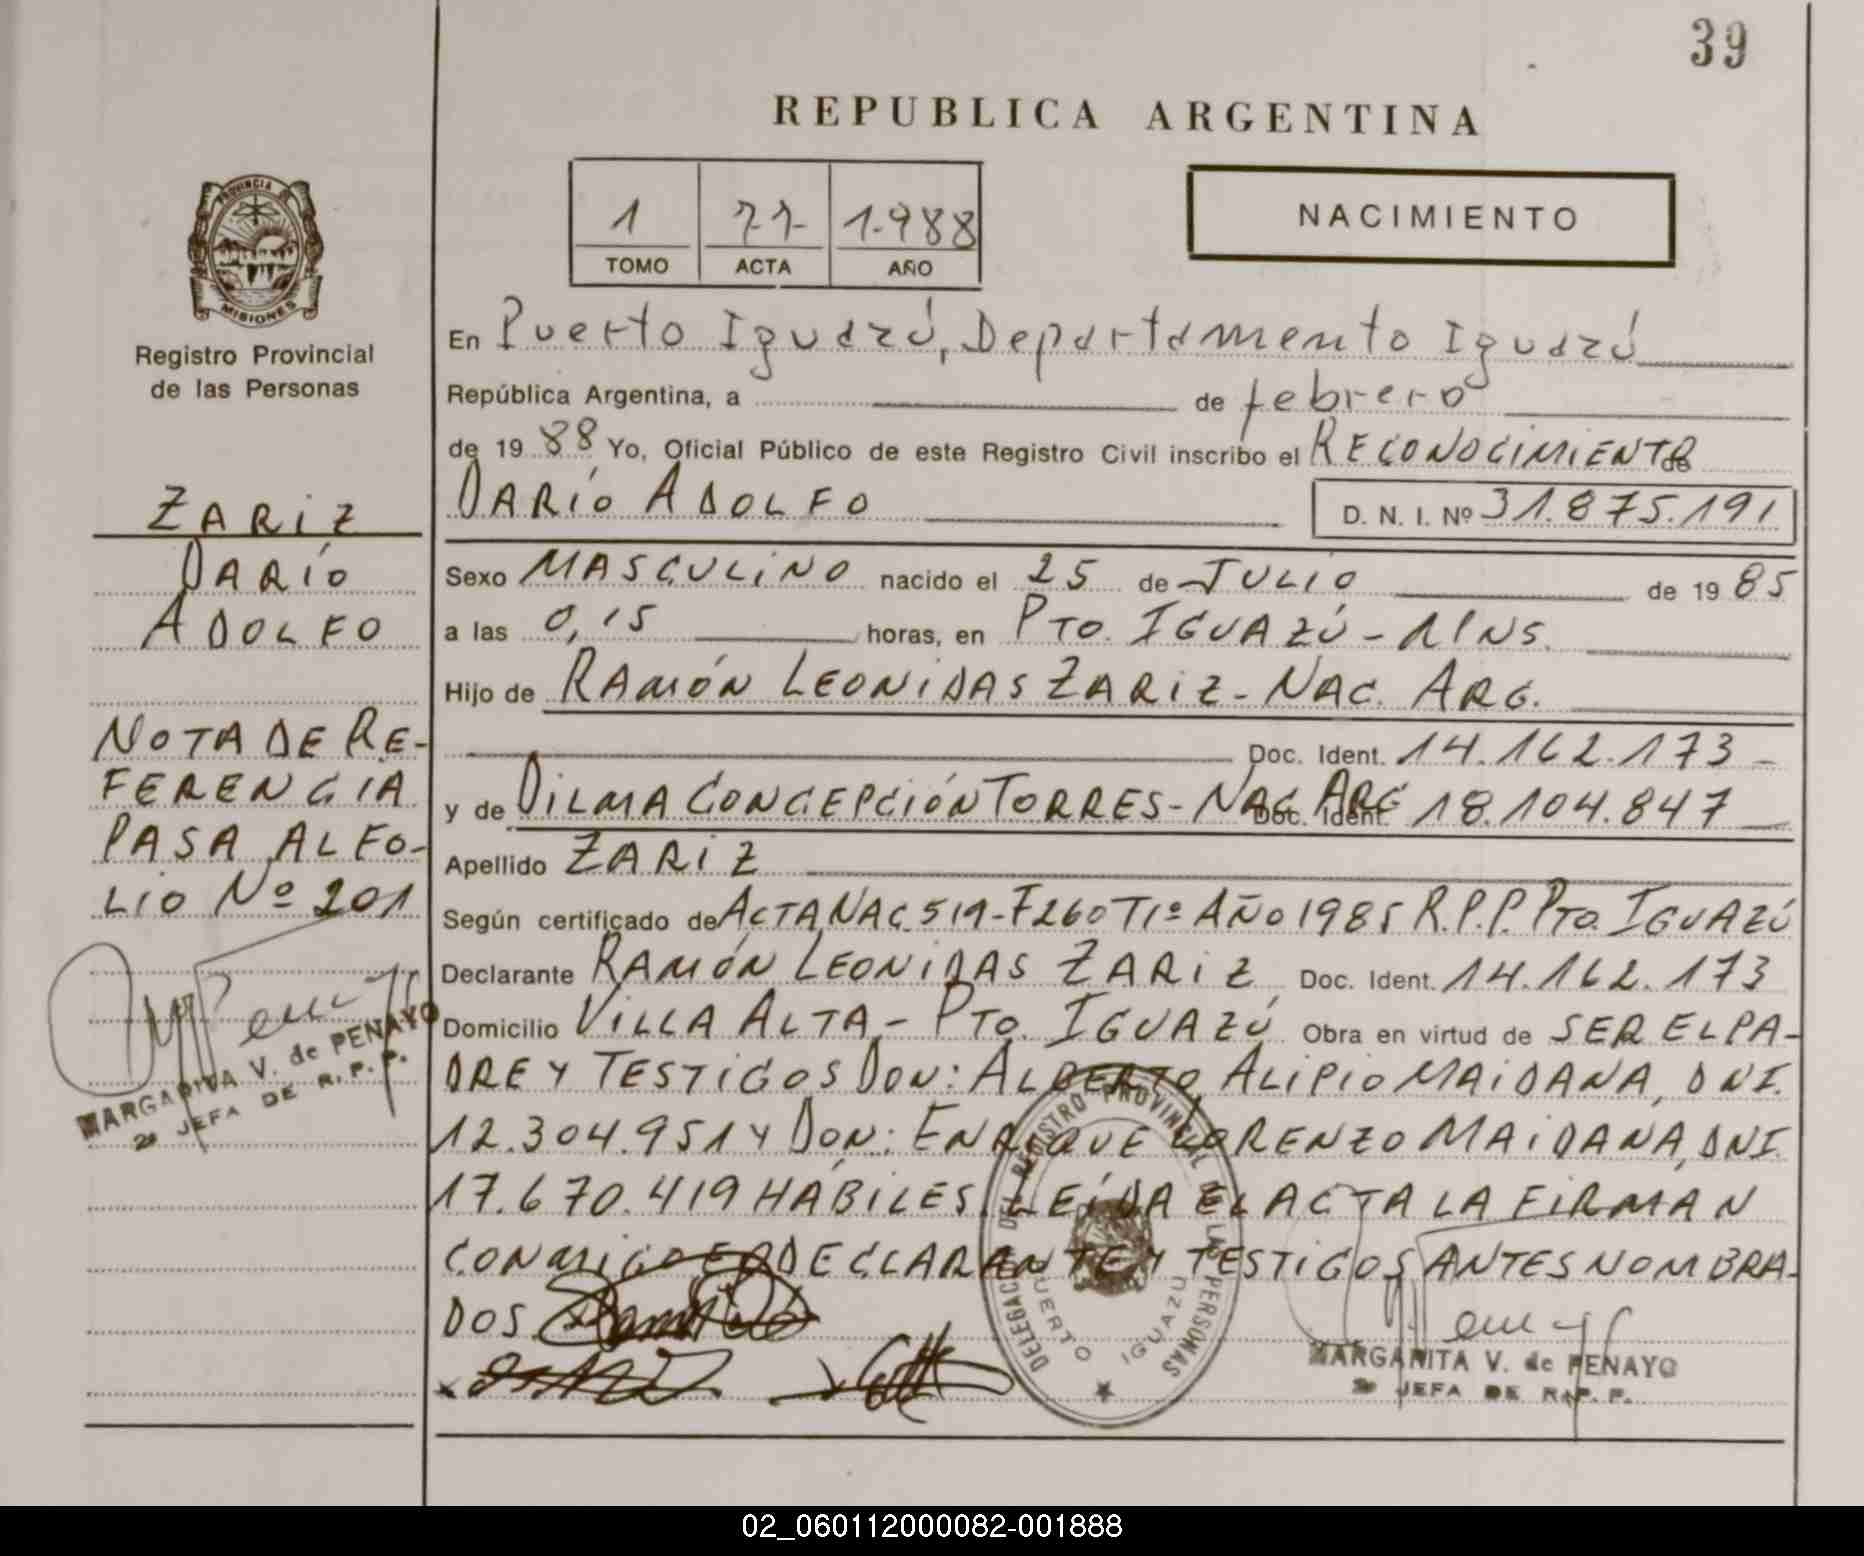 39
REPUBLICA ARGENTINA
1 77 1.988
TOMO ACTA AÑO
NACIMIENTO
PROVINCIA DE
MISIONES
Registro Provincial
de las Personas
En Puerto Iguazú, Departamento Iguazú
República Argentina, a de febrero
de 19 88 Yo, Oficial Público de este Registro Civil inscribo el RECONOCIMIENTO de
DARÍO ADOLFO D. N. I. Nº 31.875.191
Sexo MASCULINO nacido el 25 de JULIO de 19 85
a las 0,15 horas, en PTO. IGUAZÚ - MNS.
Hijo de RAMÓN LEONIDAS ZARIZ - NAC. ARG.
Doc. Ident. 14.162.173 -
y de DILMA CONCEPCIÓN TORRES - NAC ARG Doc. Ident. 18.104.847
Apellido ZARIZ
Según certificado de ACTA NAC. 519 - F260 T1º AÑO 1985 R.P.P. PTO. IGUAZÚ
Declarante RAMÓN LEONIDAS ZARIZ Doc. Ident. 14.162.173
Domicilio VILLA ALTA - PTO. IGUAZÚ Obra en virtud de SER EL PA-
DRE Y TESTIGOS DON: ALBERTO ALIPIO MAIDANA, DNI.
12.304.951 Y DON: ENRIQUE LORENZO MAIDANA, DNI.
17.670.419 HÁBILES. LEÍDA EL ACTA LA FIRMAN
CONMIGO EL DECLARANTE Y TESTIGOS ANTES NOMBRA-
DOS.
DELEGACION DEL REGISTRO PROVINCIAL DE LAS PERSONAS
PUERTO IGUAZU
MARGARITA V. de PENAYO
2ª JEFA DE R.P.P.
ZARIZ
DARÍO
ADOLFO
NOTA DE RE-
FERENCIA
PASA AL FO-
LIO Nº 201
MARGARITA V. de PENAYO
2ª JEFA DE R.P.P.
02_060112000082-001888